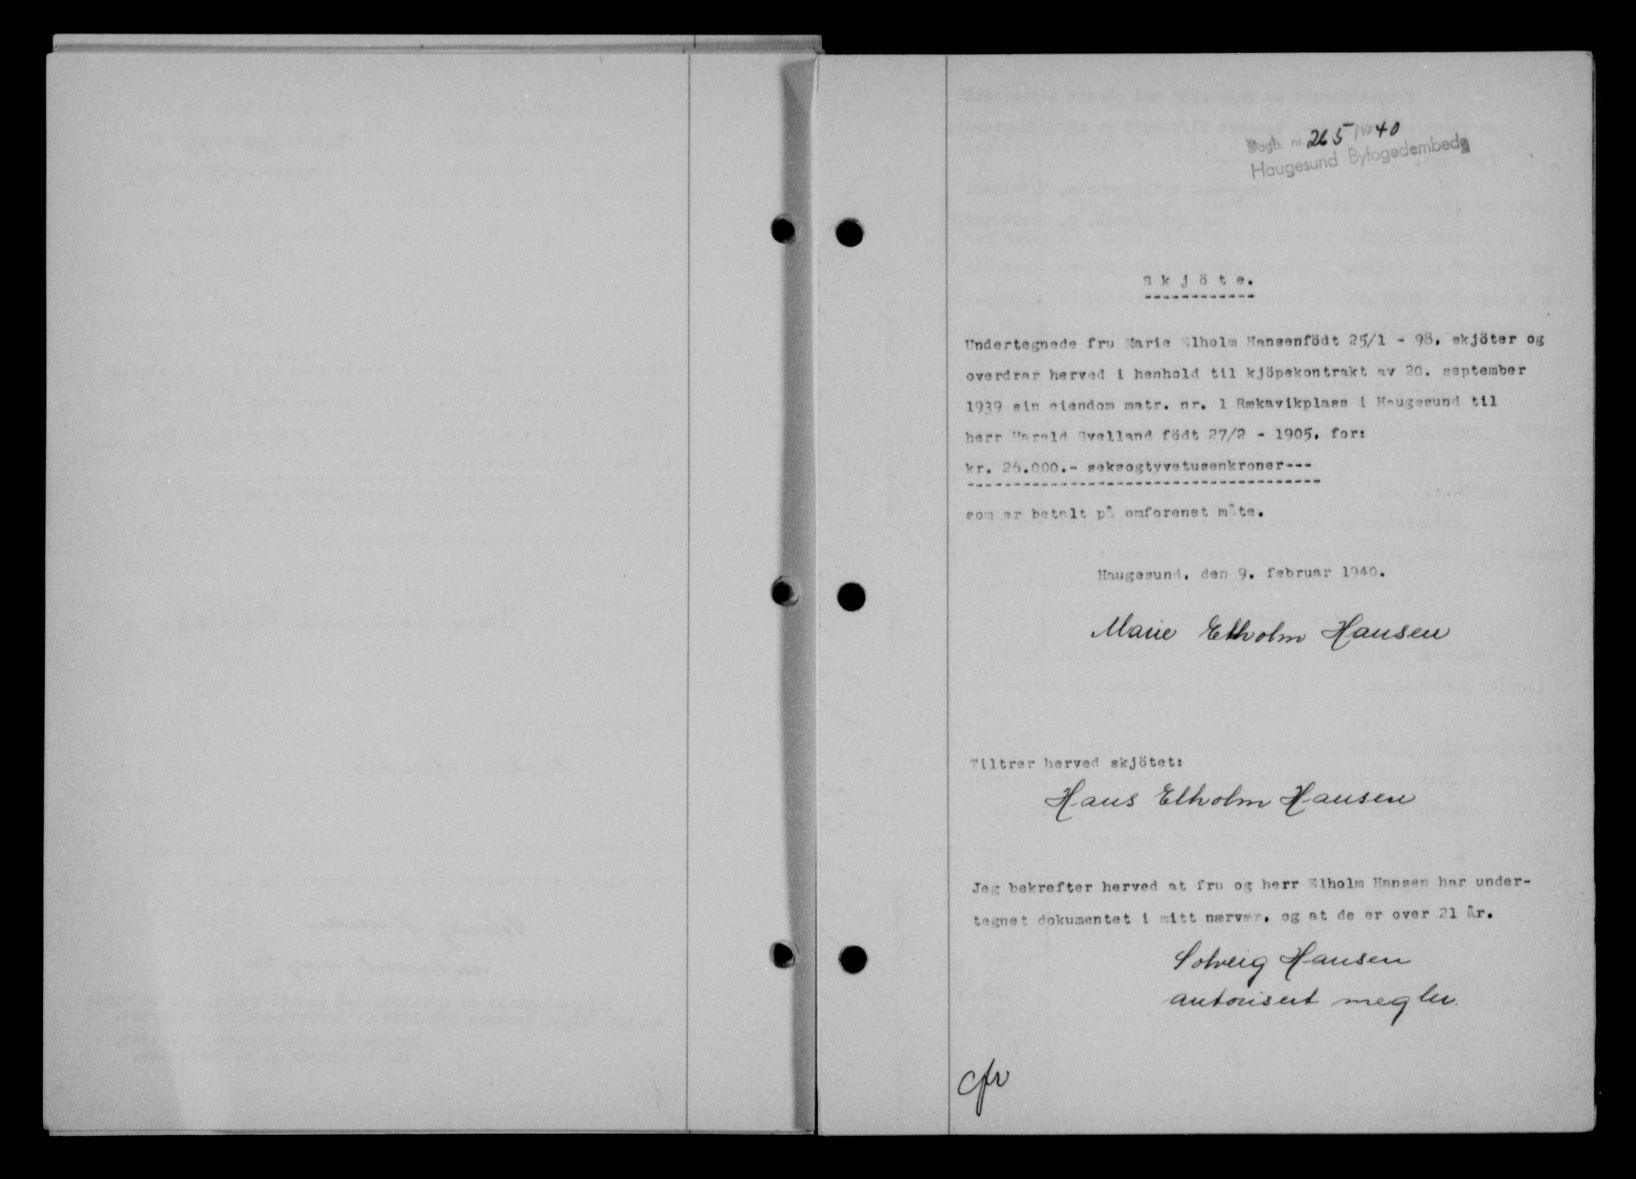 Dagb. nr. 265/1940
Haugesund Byfogedembede
Skjöte.
Undertegnede fru Marie Elholm Hansenfödt 25/1 - 98. skjöter og
overdrar herved i henhold til kjöpekontrakt av 20. september
1939 sin eiendom matr. nr. 1 Rækavikplass i Haugesund til
herr Harald Svelland födt 27/2 - 1905. for:
kr. 26.000.- seksogtyvetusenkroner---
som er betalt på omforenet måte.
Haugesund, den 9. februar 1940.
Marie Elholm Hansen
Tiltrer herved skjötet:
Hans Elholm Hansen
Jeg bekrefter herved at fru og herr Elholm Hansen har under-
tegnet dokumentet i mitt nærvær, og at de er over 21 år.
Solveig Hansen
autorisert megler.